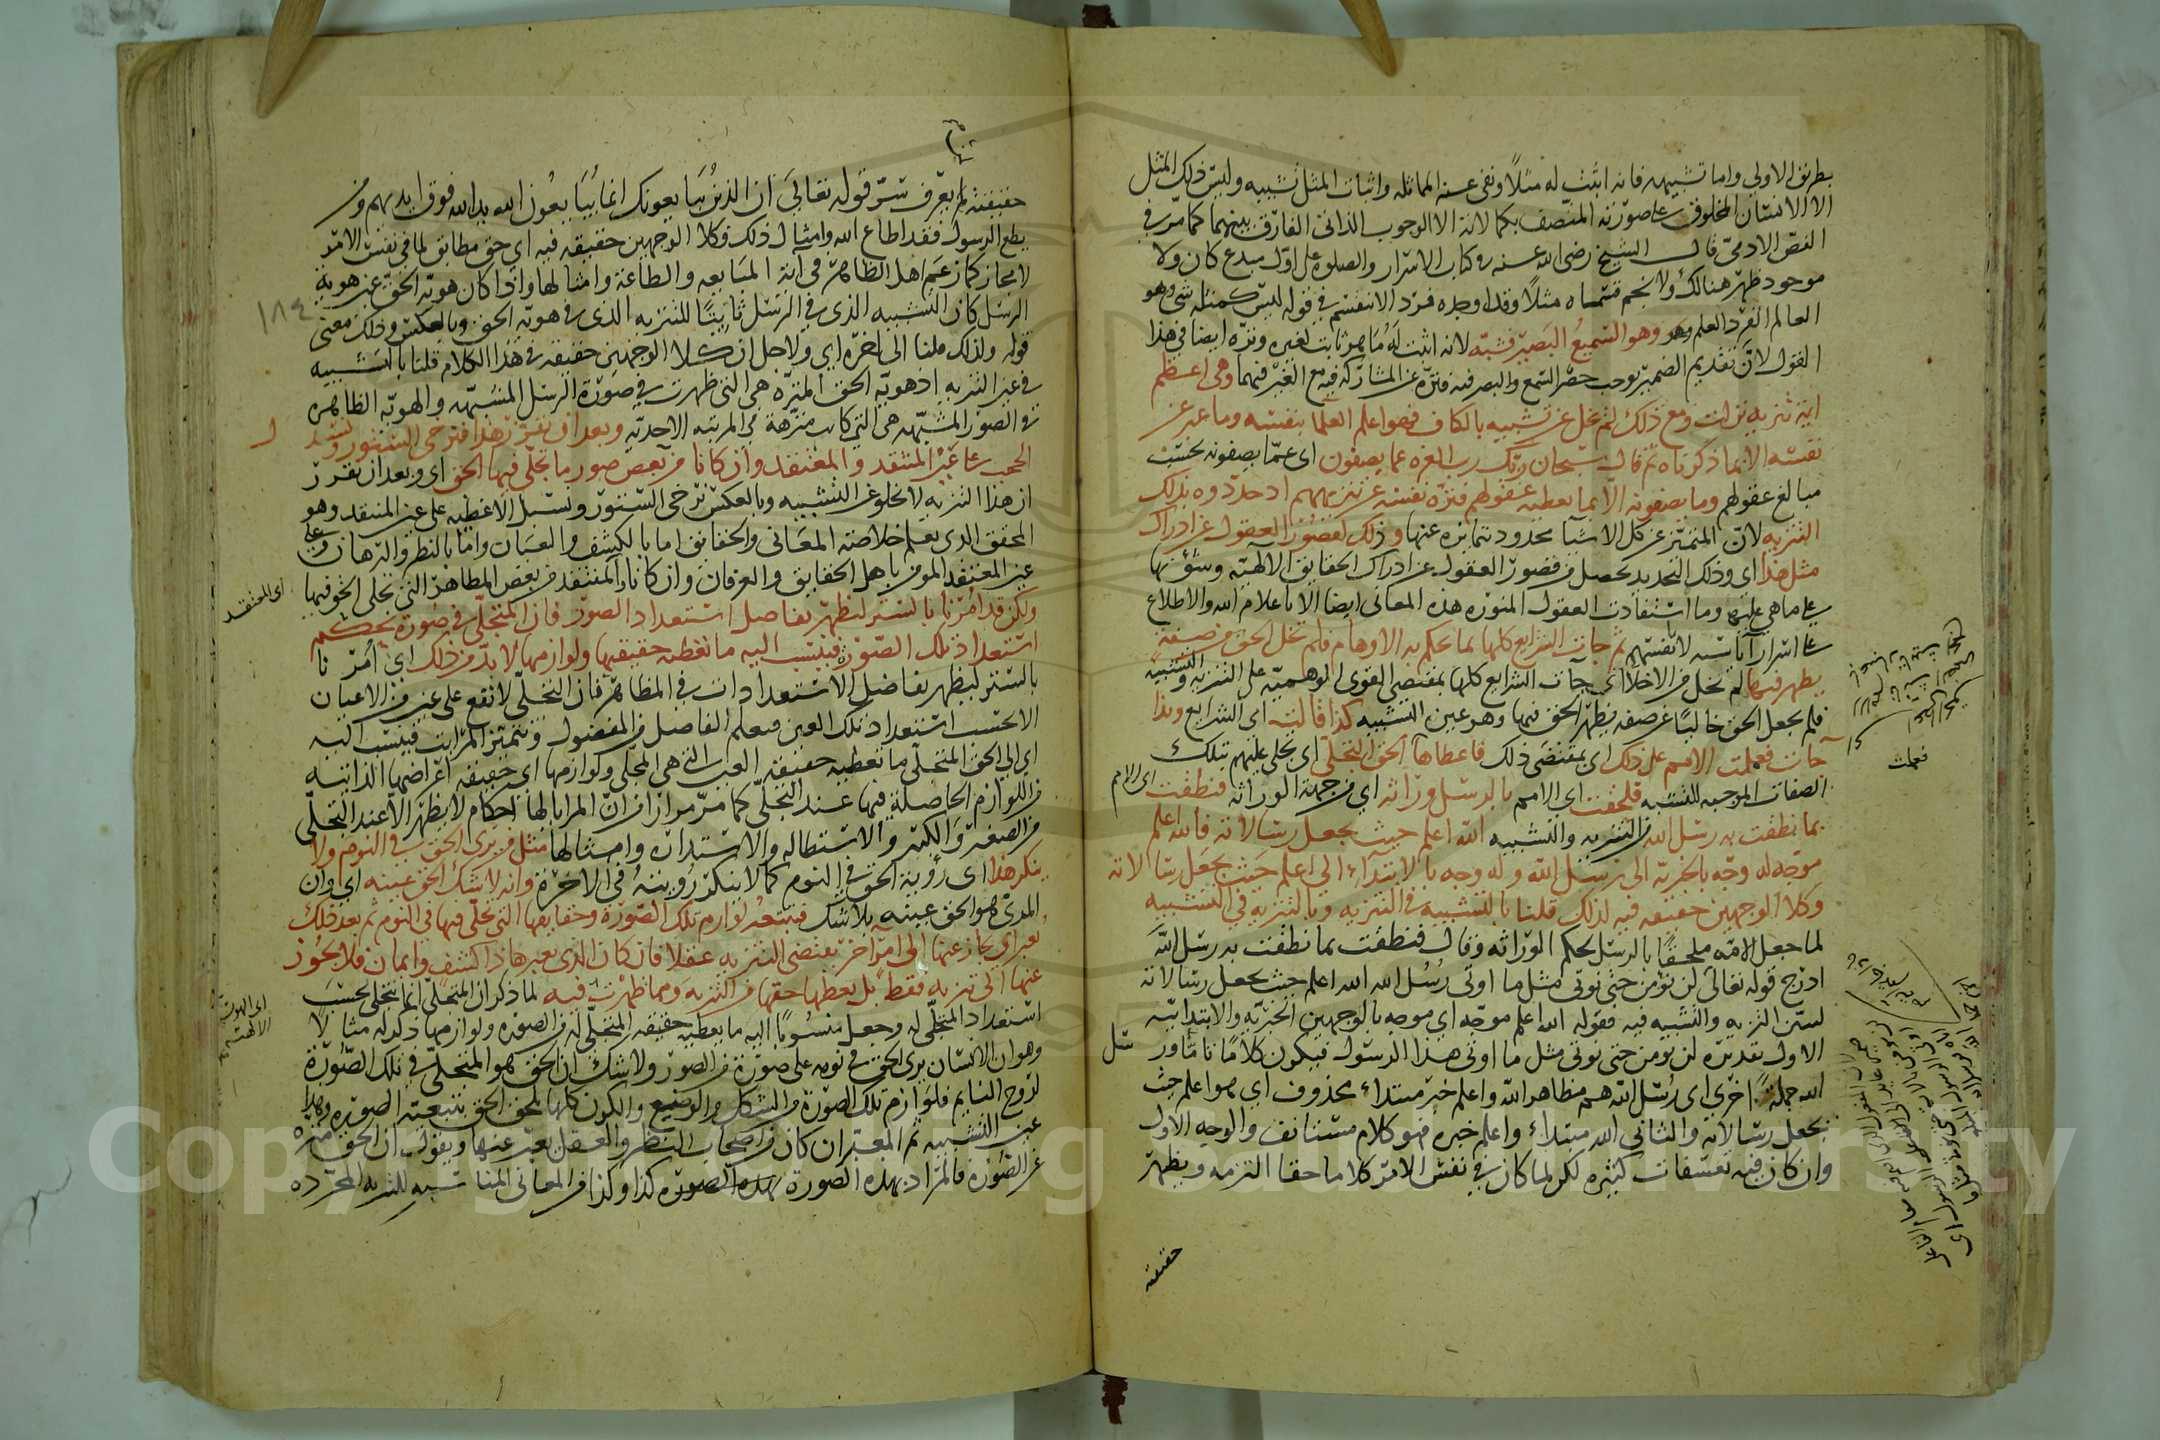 بطريق الاولى واما تشبيهه فانه اثبت له مثلاً ونفى عنه المماثله واثبات المثل تشبيه وليس ذلك المثل
الا الانسان المخلوق على صورته المتصف بكمالاته الا الوجوب الذاتى الفارق بينهما كما مرّ فى
الفصّ الادمىّ قال الشيخ رضى الله عنه فى كتاب الاسرار والصلوة على اوّل مبدع كان ولا
موجود ظهر هنالك ولا نجم فسمّاه مثلاً وقد اوجده فرد الا ينقسم فى قوله ليس كمثله شئ وهو
العالم الفرد العلم وهو وهو السّميعُ البَصير فشبّه لانه اثبت له ما هو ثابت لغيره ونزّه ايضا فى هذا
القول لانّ تقديم الضمير يوجب حصر السّمع والبصر فيه فنزّه عن المشاركه فيه مع الغير فيهما وهى اعظم
اية تنزيه نزلت ومع ذلك لم تخل عن تشبيه بالكاف فهو اعلم العلما بنفسه وما عبّر عن
نفسه الا بما ذكرناه ثم قال سبحان ربّك ربّ العزه عما يصفون اى عمّا يصفونه بحسب
مبالغ عقولهم وما يصفونه الّا بما تعطيه عقولهم فنزّه نفسه عن تنزيههم اذ حدّدوه بذلك
التنزيه لانّ المتميّز عن كل الاشيا محدود بتمايزه عنها وذلك لقصور العقول عن ادراك
مثل هذا اى وذلك التحديد يحصل من قصور العقول عن ادراك الحقايق الالهيّه وشؤنها
على ما هى عليه وما استفادت العقول المنوره هذه المعانى ايضا الا باعلام الله والاطلاع
على اسرار آياته لانفسهم ثم جات الشرايع كلها بما تحكم به الاوهام فلم تخل الحق من صفة
يظهر فيها لم تخل من الاخلا اى جآت الشرايع كلها بمقتضى القوى الوهميّه على التنزيه والتشبيه
فلم يجعل الحق خاليًا عن صفه يظهر الحق فيها وهو عين التشبيه كذا قالت اى الشرايع وبذا
جآت فعملت الامم على ذلك اى بمقتضى ذلك فاعطاها الحق التجلّى اى تجلى عليهم بتلك
الصفات الموجبه للتشبه فلحقت اى الامم بالرسل وراثه اى من جهة الوراثه فنطقت اى الامم
بما نطقت به رسل الله من التنزيه والتشبيه الله اعلم حيث يجعل رسالاته فالله اعلم
موجّه له وجه بالخبريّه الى رسل الله وله وجه بالابتداء الى اعلم حيث يجعل رسالاته
وكلا الوجهين حقيقه فيه لذلك قلنا بالتشبيه فى التنزيه وبالتنزيه فى التشبيه
لما جعل الامّه ملحقًا بالرسل بحكم الوراثه وقال فنطقت بما نطقت به رسل الله
ادرج قوله تعالى لن نؤمن حتى نوتى مثل ما اوتى رُسُل الله الله اعلم حيث يجعل رسالاته
ليبيّن التنزيه والتشبيه فيه فقوله الله اعلم موجّه اى موجه بالوجهين الخبريّه والابتدائيه
الاول تقديره لن نومن حتى نوتى مثل ما اوتى هذا الرسول فيكون كلامًا تامًا ورسل
الله جملةً اخرى اى رُسُل الله هم مظاهر الله واعلم خبر مبتداء محذوف اى هو اعلم حيث
يجعل رسالاته والثانى الله مبتداء واعلم خبره فهو كلام مستانف والوجه الاول
وان كان فيه تعسّفات كثيره لكن لما كان فى نفس الامر كلاما حقا التزمه ويظهر
حقيقته
فعملت
حقيقته لم يعرف سرّ قوله تعالى ان الذين يبايعونك انما يُبَايعُون الله يد الله فوق ايديهم ومن
يطع الرسول فقد اطاع الله وامثال ذلك وكلا الوجهين حقيقه فيه اى حق مطابق لما فى نفس الامر
لا مجاز كما زعم اهل الظاهر فى آية المبايعه والطاعة وامثالها واذا كان هويّه الحق عين هوية
الرسل كان التشبيه الذى فى الرسل ثابتًا للتنزيه الذى فى هويّه الحق وبالعكس وذلك معنى
قوله ولذلك قلنا الى اخره اى ولاجل ان كلا الوجهين حقيقه فى هذا الكلام قلنا بالتشبيه
فى عين التنزيه اذ هويّه الحق المنزّه هى التى ظهرت فى صورة الرسل المشبهه والهويّه الظاهره
فى الصور المشبّهه هى التى كانت منزّهة فى المرتبه الاحديّه وبعد ان تقرّر هذا فنرخى الستور ونسدل
الحجب على عين المنتقد والمعتقد وان كانا من بعض صور ما تجلّى فيها الحق اى وبعد ان تقرر
ان هذا التنزيه لا تخلو عن التشبيه وبالعكس نرخى الستور ونسبل الاغطيه على عين المنتقد وهو
المحقق الذى يعلم خلاصة المعانى والحقايق اما بالكشف والعيان واما بالنظر والبرهان وعلى
عين المعتقد المومن باهل الحقايق والعرفان وان كانا اى المنتقد من بعض المظاهر التى تجلى الحق فيها
اى المعتقد
ولكن قد امرنا بالستر ليظهر تفاضل استعداد الصور فان المتجلّى فى صورة بحكم
استعداد تلك الصورة فينسب اليه ما تعطيه حقيقتها ولوازمها لا بدّ من ذلك اى امرنا
بالستر ليظهر تفاضل الاستعدادات فى المظاهر فان التجلّى لا تقع على عين من الاعيان
الا بحسب استعداد تلك العين فيعلم الفاضل من المفضول وتتميّز المراتب فينسب اليه
اى الى الحق المتجلّى ما تعطيه حقيقة العين التى هى المجلى ولوازمها اى حقيقه اعراضها الذاتيه
من اللوازم الحاصلة فيها عند التجلّى كما مرّ مرارا من انّ المرايا لها احكام لا يظهر الا عند التجلّى
من الصغر والكبر والاستطاله والاستداره وامثالها مثل من يرى الحق فى النوم ولا
ينكر هذا اى رؤية الحق فى النوم كما لا ينكر رؤيته فى الاخرة وانه لا شك الحق عينه اى وان
المرئى هو الحق عينه بلا شك فيتبعه لوازم تلك الصورة وحقايقها التى تجلّى فيها فى النوم ثم بعد ذلك
يعبر اى يجاز عنها الى امر اخر يقتضى التنزيه عقلا فان كان الذى يعبرها ذا كشف وايمان فلا يجوز
عنها الى تنزيه فقط بل يعطيها حقها من التنزيه ومما ظهرت فيه لما ذكر ان المتجلّى انما يتجلى بحسب
استعداد المتجلّى له وجعل منسوبًا اليه ما يعطيه حقيقه المتجلّى له من الصوره ولوازمها ذكر له مثالا
وهو ان الانسان يرى الحق فى نومه على صورة من الصور ولا شك ان الحق هو المتجلّى فى تلك الصّورة
لروح النايم فلوازم تلك الصورة من الشكل والوضع واللون كلها يلحق الحق بتبعيّه الصوره وهذا
عين التشبيه ثم المعبر ان كان من اصحاب النظر والعقل يعبر عنها ويقول ان الحق منزه
عن الصّورة فالمراد بهذه الصورة كذا وكذا من المعانى المناسبه للتنزيه المجرّده
١٨٤
Copy right King Saud University